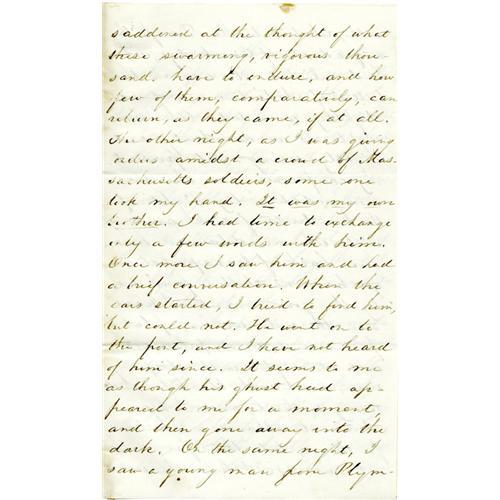 saddened at the thought of what
these swarming, vigorous thou-
sand have to endure, and how
few of them, comparatively, can
return, as they came, if at all.
The other night, as I was giving
orders amidst a crowd of Mas-
sachusetts soldiers, some one
took my hand. It was my own
brother. I had time to exchange
only a few words with him.
Once more I saw him and had
a brief conversation. When the
cars started, I tried to find him,
but could not. He went on to
the port, and I have not heard
of him since. It seems to me
as though his ghost had ap-
peared to me for a moment,
and then gone away into the
dark. On the same night, I
saw a young man from Plym-